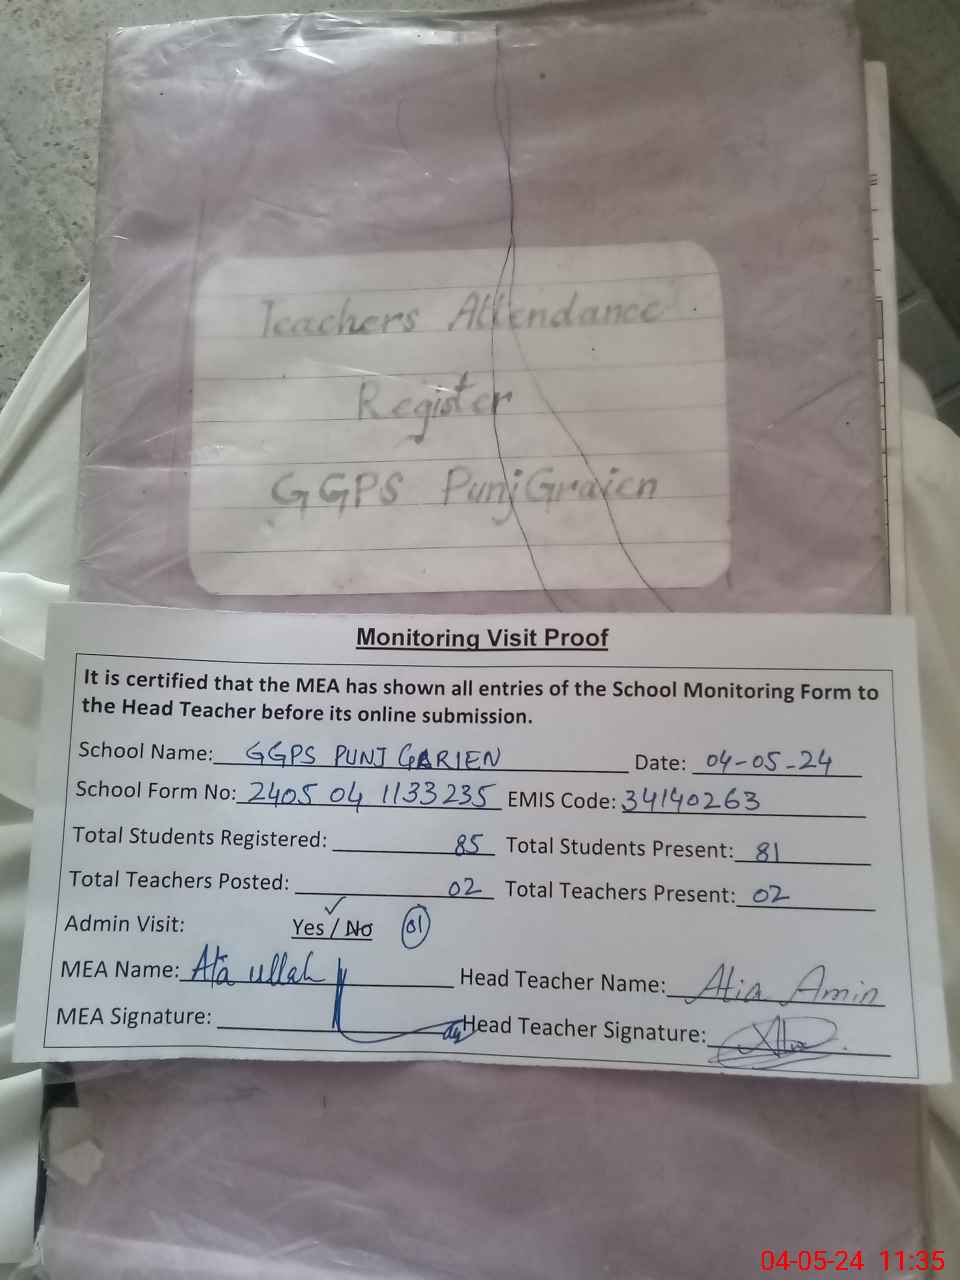 Teachers Attendance
Register
GGPS PunjGraien
Monitoring Visit Proof
It is certified that the MEA has shown all entries of the School Monitoring Form to
the Head Teacher before its online submission.
School Name: GGPS PUNJ GARIEN Date: 04-05-24
School Form No: 2405 04 1133235 EMIS Code: 34140263
Total Students Registered: 85 Total Students Present: 81
Total Teachers Posted: 02 Total Teachers Present: 02
Admin Visit: Yes / No 01
MEA Name: Ata ullah Head Teacher Name: Atia Amin
MEA Signature: Head Teacher Signature:
04-05-24 11:35